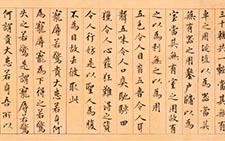 三十輻共一轂當其無有
車之用埏埴以為器當其
無有器之用鑿戶牖以為
室當其無有室之用故有
之以為利無之以為用
五色令人目盲五音令人耳
聾五味令人口爽馳騁田
獵令人心發狂難得之貨
令人行妨是以聖人為腹
不為目故去彼取此
寵辱若驚貴大患若身何
謂寵辱為下得之若驚
失之若驚是謂寵辱若驚
何謂貴大患若身吾所以